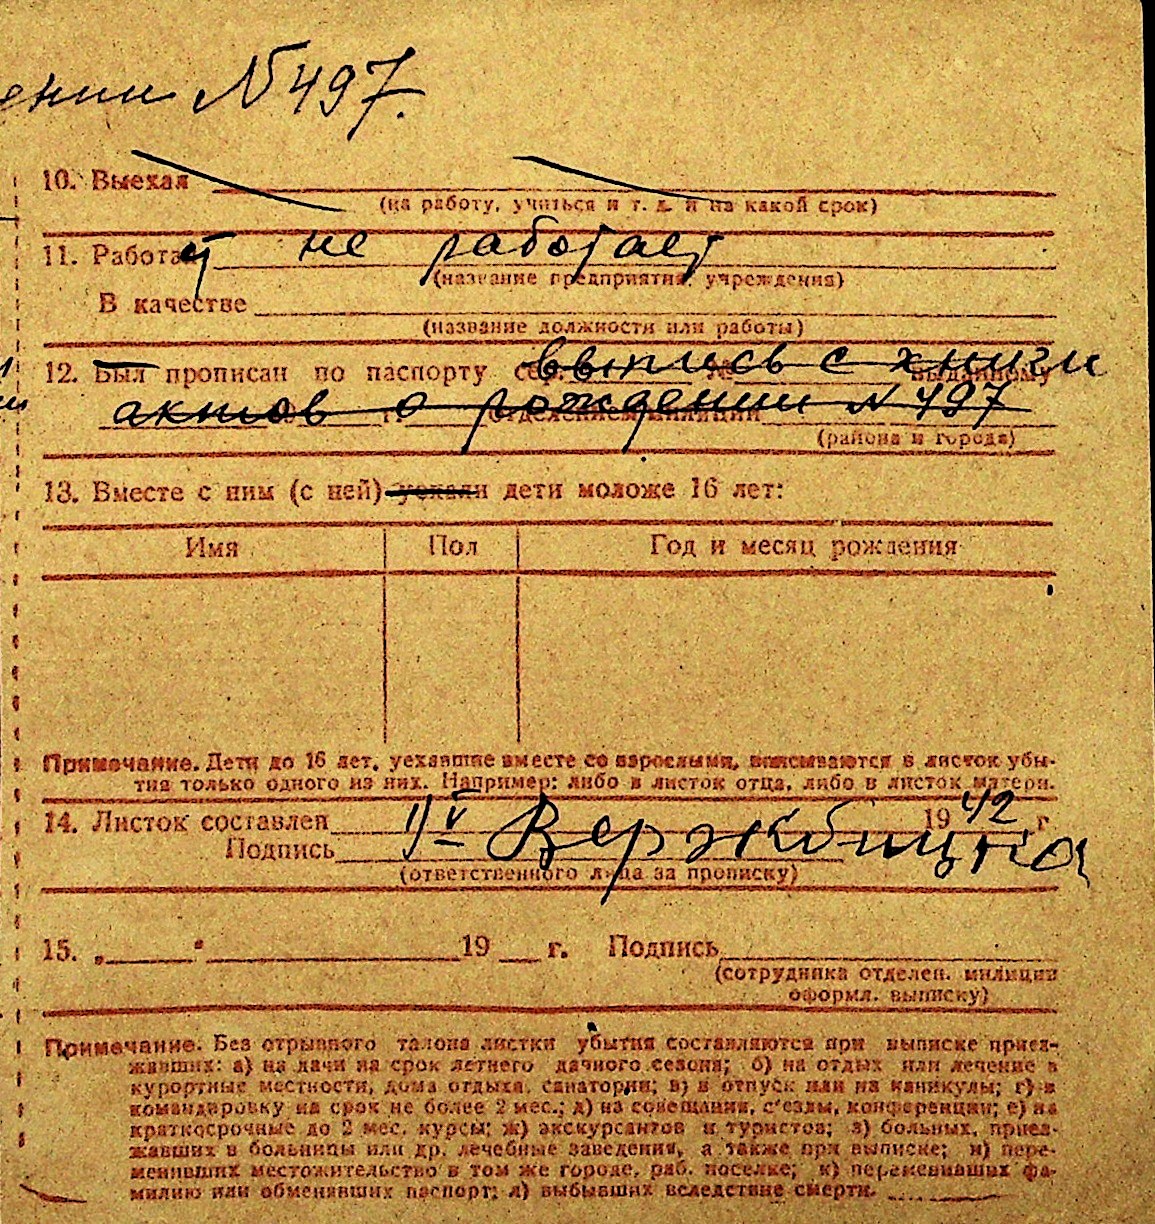 ении № 497.
10. Выехал
(на работу, учиться и т. д. и на какой срок)
11. Работает не работает
(название предприятия, учреждения)
В качестве
(название должности или работы)
12. Был прописан по паспорту сер. выпись с книги
выданному
актов о рождении № 497
г. отделением милиции
(района и города)
13. Вместе с ним (с ней) уехали дети моложе 16 лет:
Имя Пол Год и месяц рождения
Примечание. Дети до 16 лет, уехавшие вместе со взрослыми, вписываются в листок убы-
тия только одного из них. Например: либо в листок отца, либо в листок матери.
14. Листок составлен 1/V 1942 г.
Подпись Вержбицка
(ответственного лица за прописку)
15. „ " 19 г. Подпись
(сотрудника отделен. милиции
оформл. выписку)
Примечание. Без отрывного талона листки убытия составляются при выписке приез-
жавших: а) на дачи на срок летнего дачного сезона; б) на отдых или лечение в
курортные местности, дома отдыха, санатории; в) в отпуск или на каникулы; г) в
командировку на срок не более 2 мес.; д) на совещания, с'езды, конференции; е) на
краткосрочные до 2 мес. курсы; ж) экскурсантов и туристов; з) больных, приез-
жавших в больницы или др. лечебные заведения, а также при выписке; и) пере-
менивших местожительство в том же городе, раб. поселке; к) переменивших фа-
милию или обменявших паспорт; л) выбывших вследствие смерти.